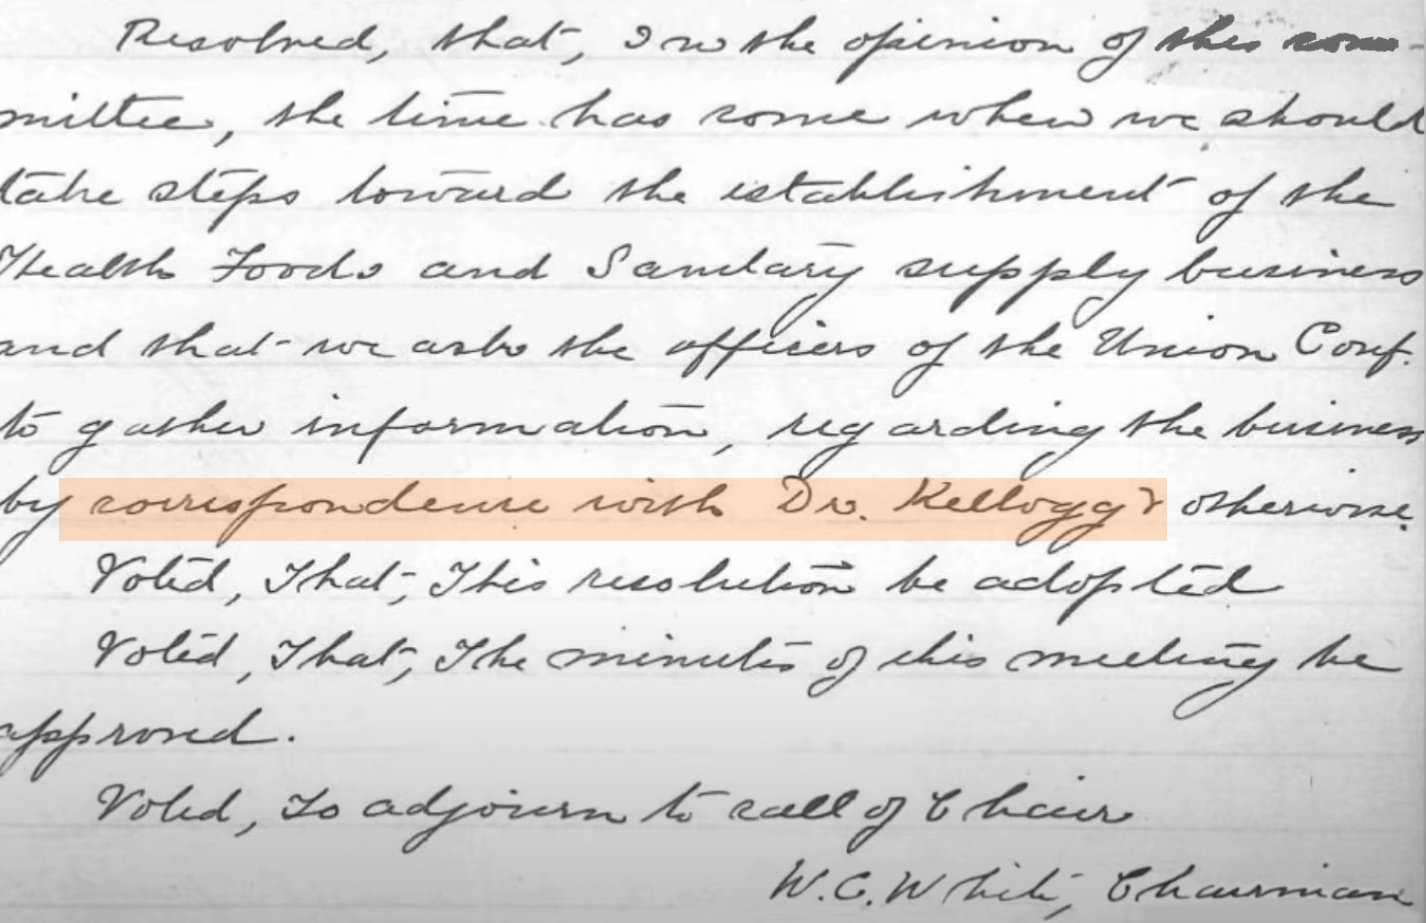 Resolved, that, In the opinion of this com-
mittee, the time has come when we should
take steps toward the establishment of the
Health Foods and Sanitary supply business
and that we ask the officers of the Union Conf.
to gather information, regarding the business
by correspondence with Dr. Kellogg & otherwise.
Voted, That, This resolution be adopted
Voted, That, The minutes of this meeting be
approved.
Voted, To adjourn to call of Chair
W.C. White, Chairman